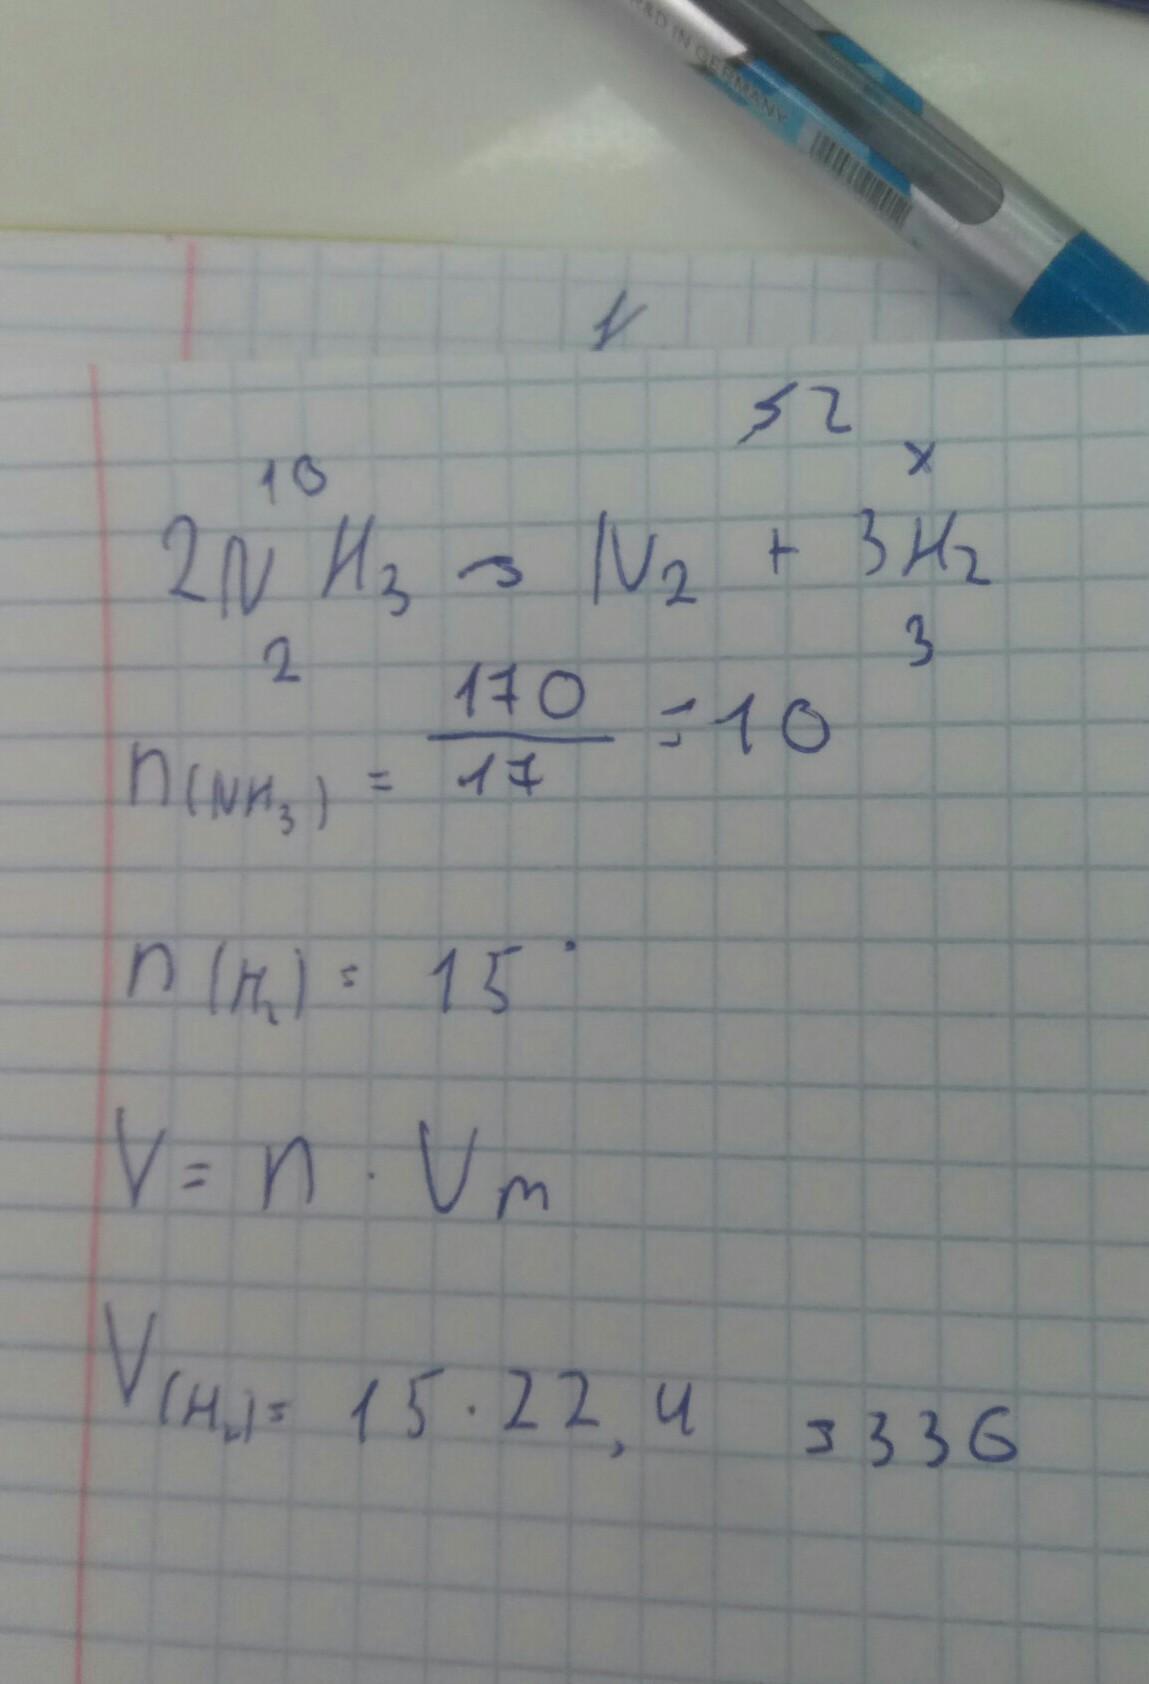 MADE IN GERMANY
52
10 x
2NH₃ → N₂ + 3H₂
2 3
n(NH₃) = 170/17 = 10
n(H₂) = 15
V = n · Vm
V(H₂) = 15 · 22,4 = 336